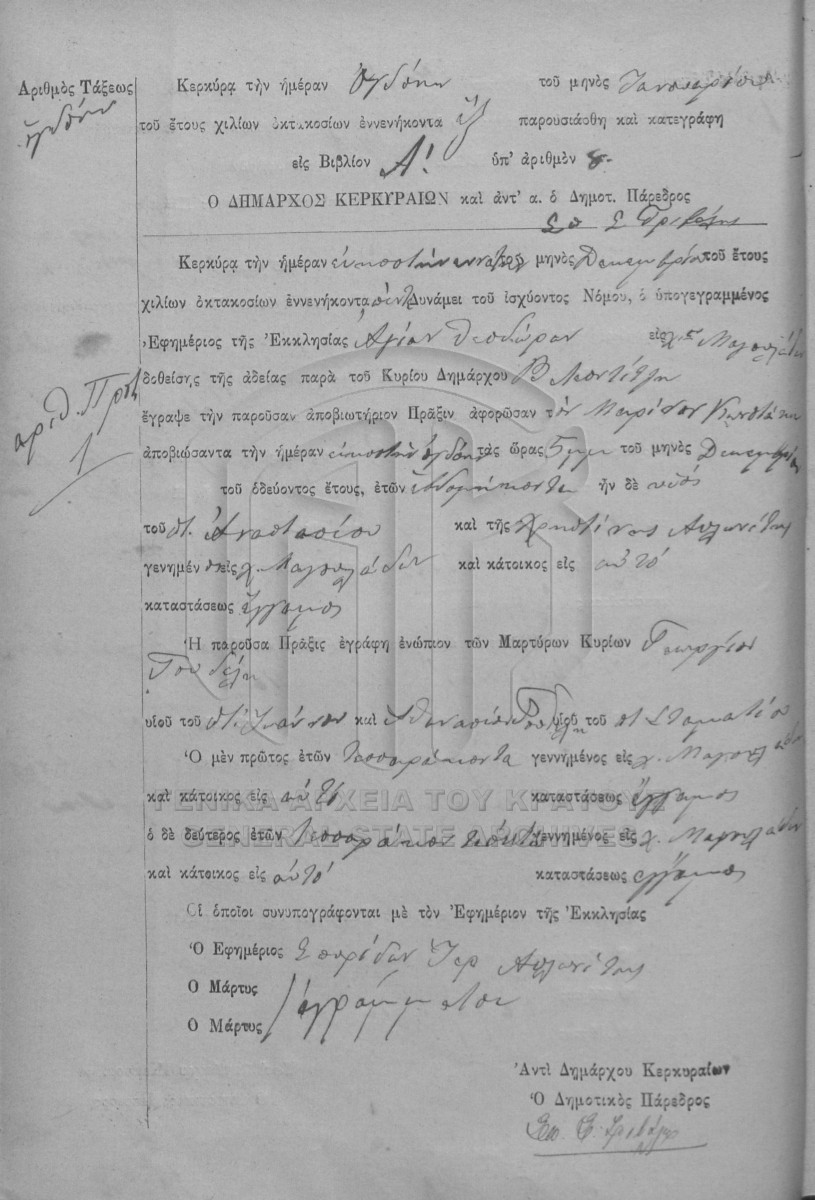 Ἀριθμὸς Τάξεως
ὀγδόη
Κερκύρᾳ τὴν ἡμέραν Ὀγδόην τοῦ μηνὸς Ἰανουαρίου
τοῦ ἔτους χιλίων ὀκτακοσίων ἐννενήκοντα ἓξ παρουσιάσθη καὶ κατεγράφη
εἰς Βιβλίον Α! ὑπ' ἀριθμὸν 8.
Ο ΔΗΜΑΡΧΟΣ ΚΕΡΚΥΡΑΙΩΝ καὶ ἀντ' α. ὁ Δημοτ. Πάρεδρος
Κερκύρᾳ τὴν ἡμέραν εἰκοστὴν ἐννάτην τοῦ μηνὸς Δεκεμβρίου τοῦ ἔτους
χιλίων ὀκτακοσίων ἐννενήκοντα πέντε Δυνάμει τοῦ ἰσχύοντος Νόμου, ὁ ὑπογεγραμμένος
Ἐφημέριος τῆς Ἐκκλησίας Ἁγίαν Θεοδώραν εἰς χ.
δοθείσης τῆς ἀδείας παρὰ τοῦ Κυρίου Δημάρχου
ἀριθ. Πρωτ
1
ἔγραψε τὴν παροῦσαν ἀποβιωτήριον Πρᾶξιν ἀφορῶσαν τὸν
ἀποβιώσαντα τὴν ἡμέραν εἰκοστὴν ὀγδόην τὰς ὥρας 5 μμ τοῦ μηνὸς Δεκεμβρίου
τοῦ ὁδεύοντος ἔτους, ἐτῶν ἑβδομήκοντα ἦν δὲ υἱὸς
τοῦ π. Ἀναστασίου καὶ τῆς Χρηστίνης Αὐλωνίτης
γενημέν ος εἰς χ. καὶ κάτοικος εἰς αὐτό
καταστάσεως ἔγγαμος
Ἡ παροῦσα Πρᾶξις ἐγράφη ἐνώπιον τῶν Μαρτύρων Κυρίων Γεωργίου
υἱοῦ τοῦ π. Ἰωάννου καὶ Ἀθανασίου υἱοῦ τοῦ π. Σταματίου
Ὁ μὲν πρῶτος ἐτῶν τεσσαράκοντα γεννημένος εἰς χ.
καὶ κάτοικος εἰς αὐτό καταστάσεως ἔγγαμος
ΓΕΝΙΚΑ ΑΡΧΕΙΑ ΤΟΥ ΚΡΑΤΟΥΣ
GENERAL STATE ARCHIVES
ὁ δὲ δεύτερος ἐτῶν Τεσσαράκοντα πέντε γεννημένος εἰς χ.
καὶ κάτοικος εἰς αὐτό καταστάσεως ἔγγαμος
Οἱ ὁποῖοι συνυπογράφονται μὲ τὸν Ἐφημέριον τῆς Ἐκκλησίας
Ὁ Ἐφημέριος Σπυρίδων Ἱερ Αὐλωνίτης
Ο Μάρτυς
ἀγράμματοι
Ο Μάρτυς
Ἀντὶ Δημάρχου Κερκυραίων
Ὁ Δημοτικὸς Πάρεδρος